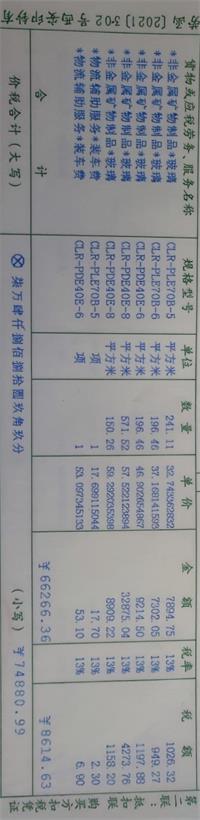 函 [2021] 302 号
货物或应税劳务、服务名称 规格型号 单位 数量 单价 金额 税率 税额
*非金属矿物制品*玻璃 CLR-PLE70B-5 平方米 241.11 32.743362832 7894.75 13% 1026.32
*非金属矿物制品*玻璃 CLR-PLE70B-6 平方米 196.46 37.168141593 7302.05 13% 949.27
*非金属矿物制品*玻璃 CLR-PDE40E-6 平方米 196.46 46.902654867 9214.50 13% 1197.88
*非金属矿物制品*玻璃 CLR-PDE40E-8 平方米 571.52 57.522123894 32875.04 13% 4273.76
*非金属矿物制品*玻璃 CLR-PDE40E-8 平方米 150.26 59.292035398 8909.22 13% 1158.20
*物流辅助服务*装车费 CLR-PLE70B-5 项 1 17.699115044 17.70 13% 2.30
*物流辅助服务*装车费 CLR-PDE40E-6 项 1 53.097345133 53.10 13% 6.90
合计 ￥66266.36 ￥8614.63
价税合计（大写） ⊗柒万肆仟捌佰捌拾圆玖角玖分 （小写）￥74880.99
第二联：抵扣联 购买方扣税凭证